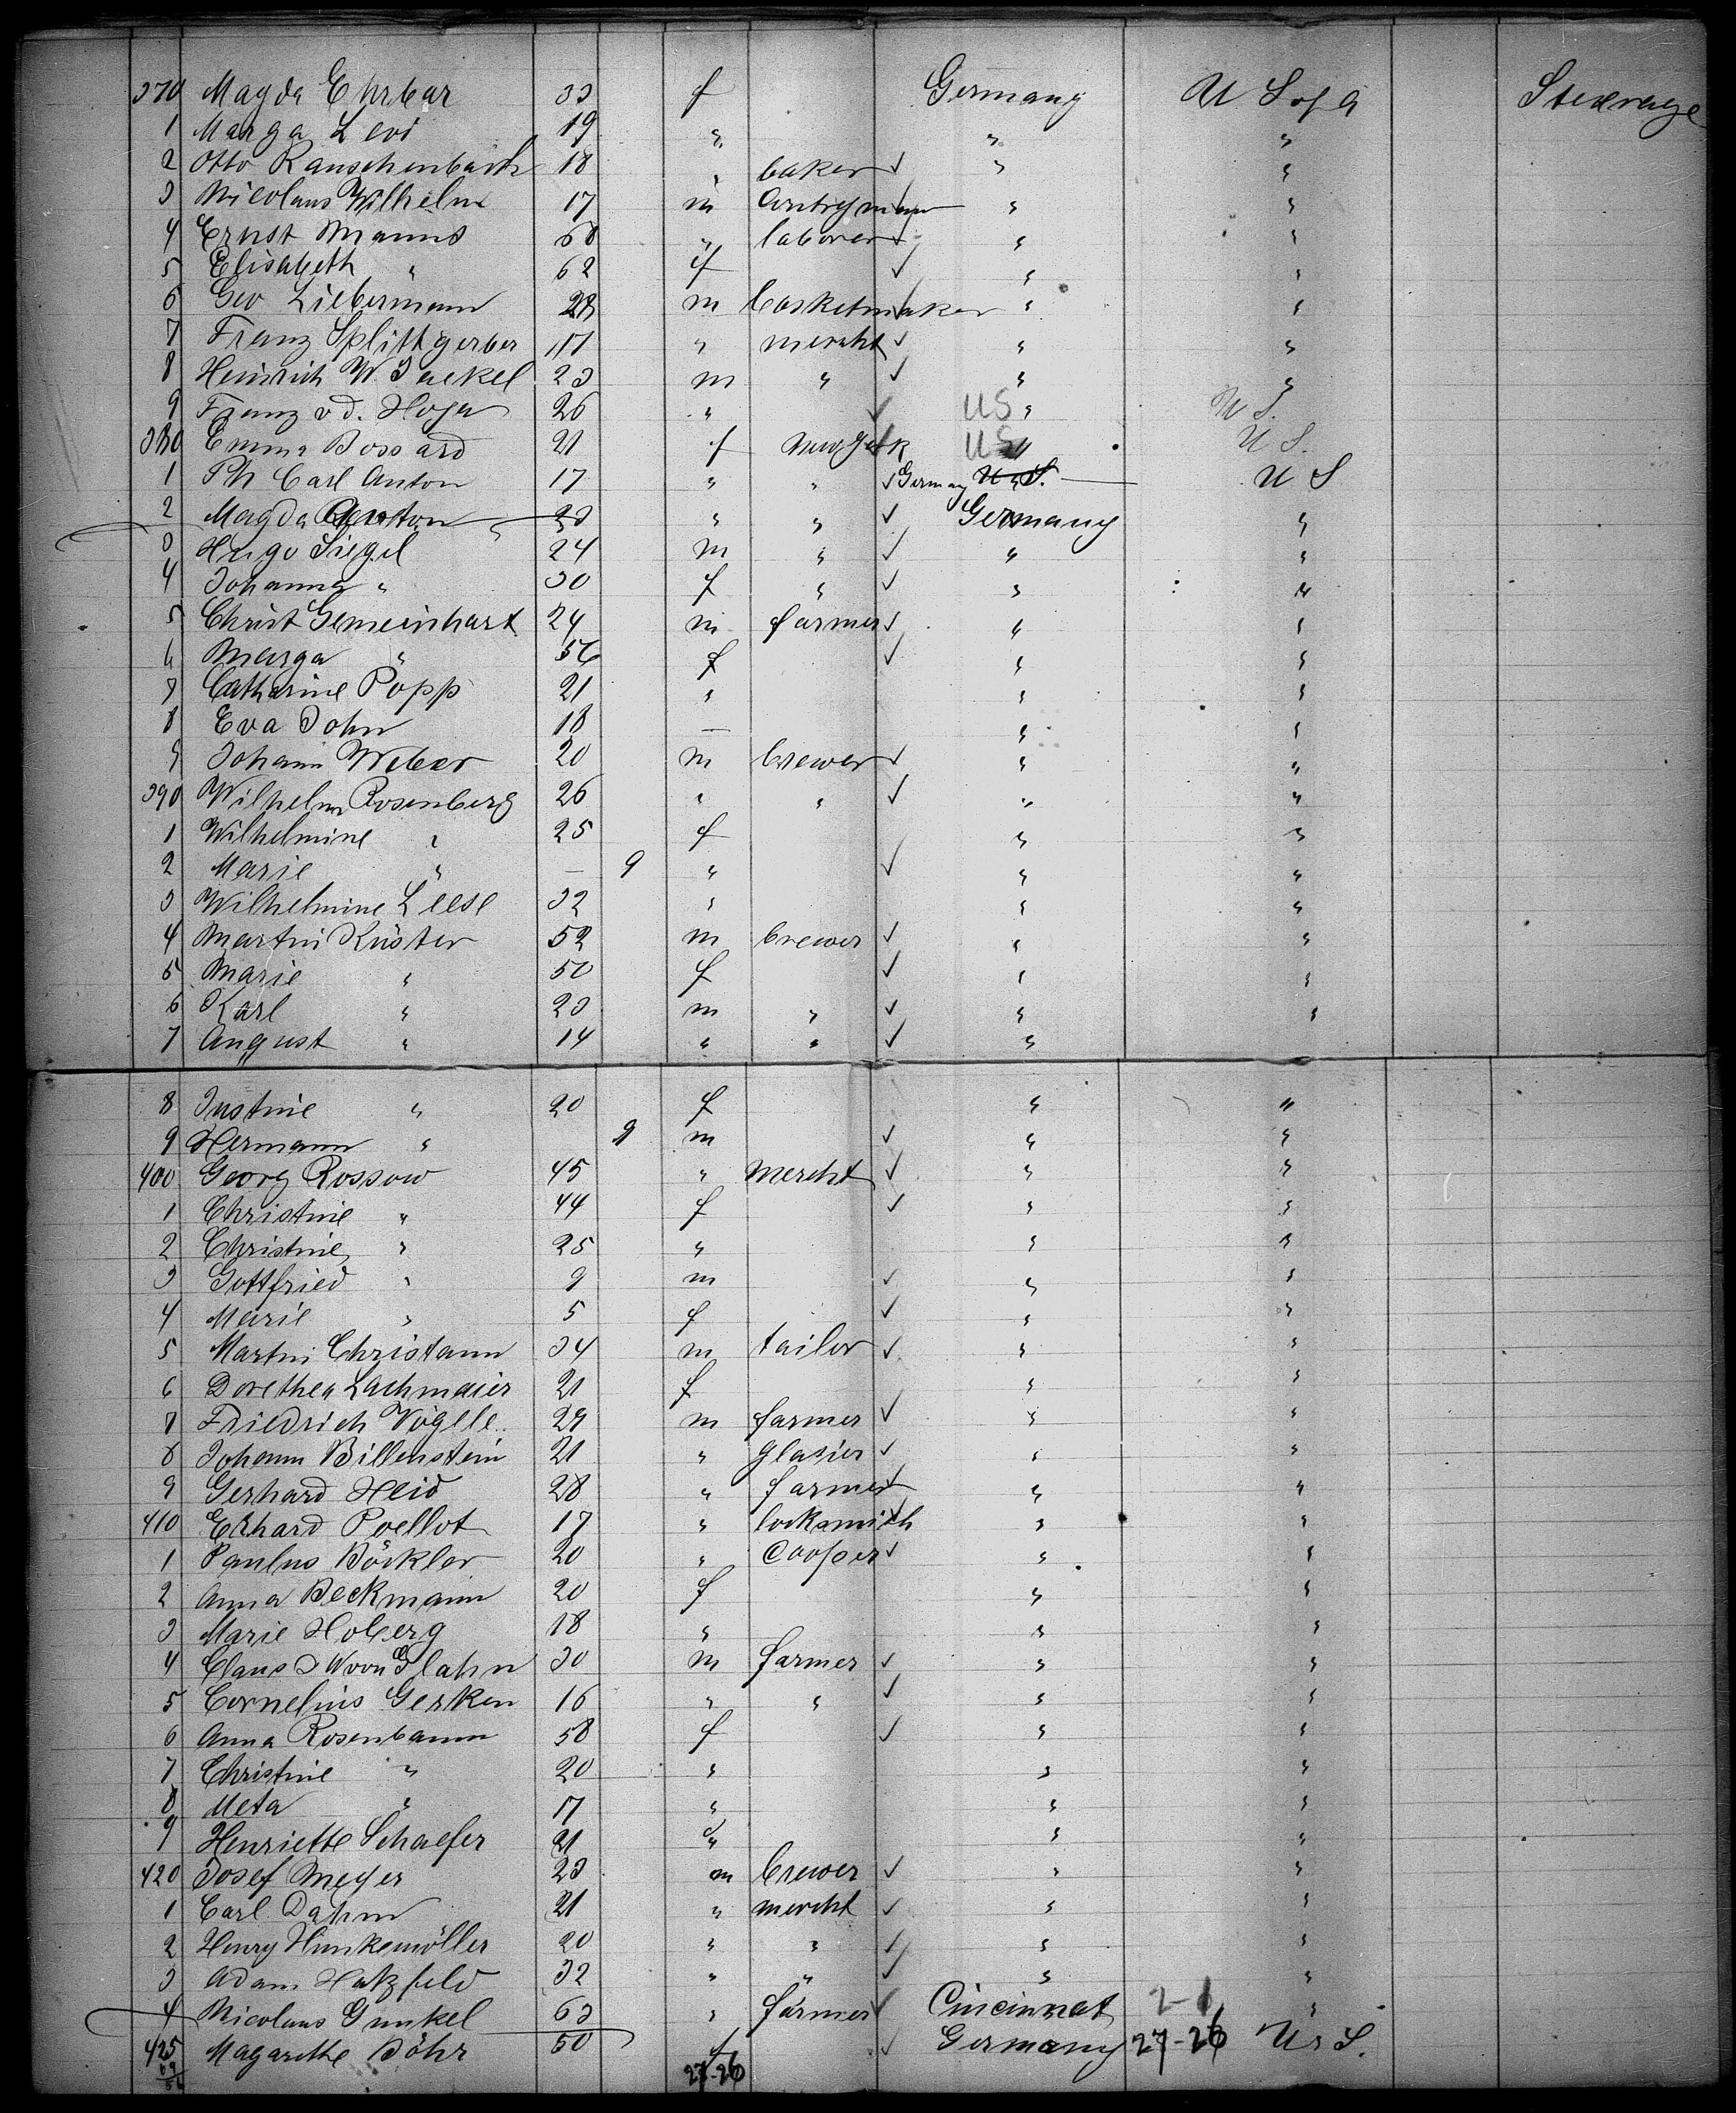 370 Magda Ehrbar 33 f Germany U S of A Steerage
1 Marga Levi 19 " " "
2 Otto Rauschenbach 18 " baker " "
3 Nicolaus Wilhelm 17 m " "
4 Ernst Manns 68 " laborer " "
5 Elisabeth " 62 f " "
6 Geo Liebermann 28 m basketmaker " "
7 Franz Splittgerber 17 " mercht " "
8 Heinrich W. Jaekel 23 m " " "
9 Franz v d. Hoya 26 " US " U S.
380 Emma Bossard 21 f New York US " U S.
1 Ph Carl Anton 17 " " Germany U. S. U S
2 Magda Anton 23 " " Germany "
3 Hugo Siegel 24 m " " "
4 Johanna " 30 f " " "
5 Christ Gemeinhart 24 m farmer " "
6 Marga " 56 f " "
7 Catharine Popp 21 " " "
8 Eva John 18 — " "
9 Johann Weber 20 m brewer " "
390 Wilhelm Rosenberg 26 " " " "
1 Wilhelmine " 25 f " "
2 Marie " — 9 " " "
3 Wilhelmine Leese 32 " " "
4 Martin Küster 52 m brewer " "
5 Marie " 50 f " "
6 Karl " 23 m " " "
7 August " 14 " " " "
8 Justine " 20 f " "
9 Hermann " 9 m " "
400 Georg Rossow 45 " mercht " "
1 Christine " 44 f " "
2 Christine " 25 " " "
3 Gottfried " 9 m " "
4 Marie " 5 f " "
5 Martin Christann 34 m tailor " "
6 Dorethea Lachmaier 21 f " "
7 Friedrich Vögele 29 m farmer " "
8 Johann Billenstein 21 " glasier " "
9 Gerhard Heid 28 " farmer " "
410 Erhard Poellot 17 " locksmith " "
1 Paulus Böckler 20 " cooper " "
2 Anna Beckmann 20 f " "
3 Marie Hoberg 18 " " "
4 Claus J W von Glahn 30 m farmer " "
5 Cornelius Gerken 16 " " " "
6 Anna Rosenbaum 58 f " "
7 Christine " 20 " " "
8 Meta " 17 " " "
9 Henriette Schaefer 21 " " "
420 Josef Meyer 23 m brewer " "
1 Carl Dahm 21 " mercht " "
2 Henry Hunkemöller 20 " " " "
3 Adam Hatzfeld 32 " " " "
4 Nicolaus Gunkel 63 " farmer Cincinnat 2-1 "
425 Magarethe Böhr 50 f Germany 27-26 U. S.
27-26